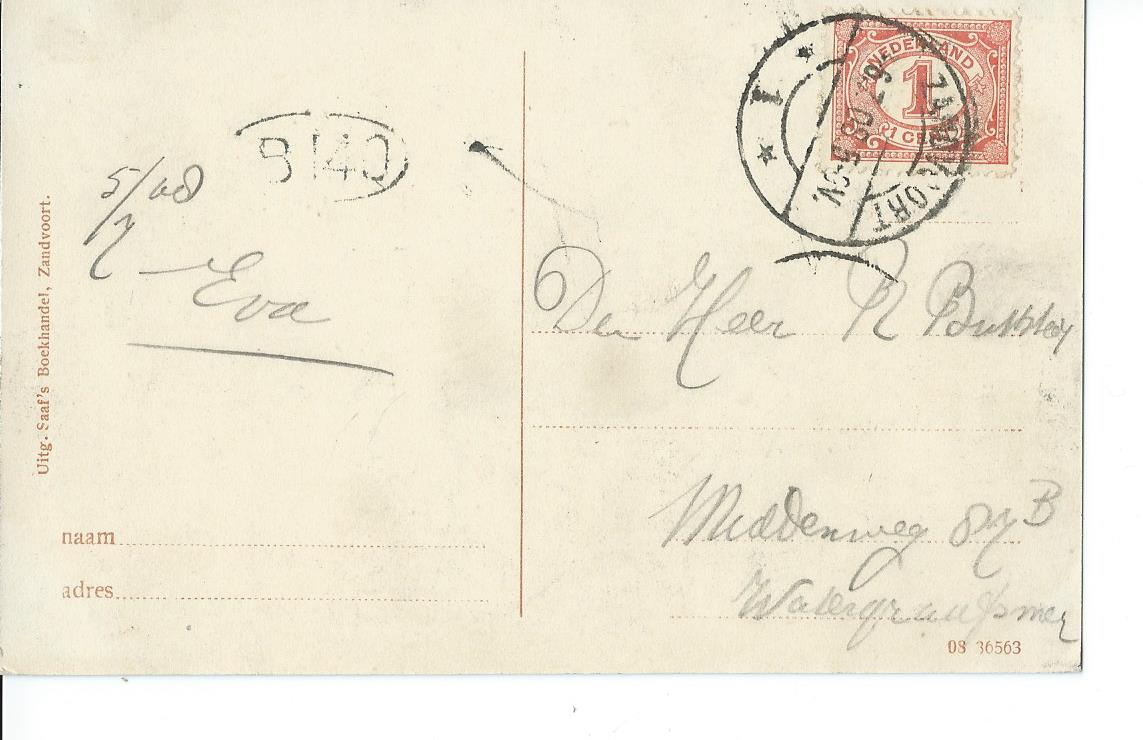 NEDERLAND
1
1 CENT
ZANDVOORT
1
B 140
5/
7 08
Eva
Den Heer R
Middenweg 87 B
Watergraafsmeer
Uitg. Saaf's Boekhandel, Zandvoort.
naam
adres
08 36563